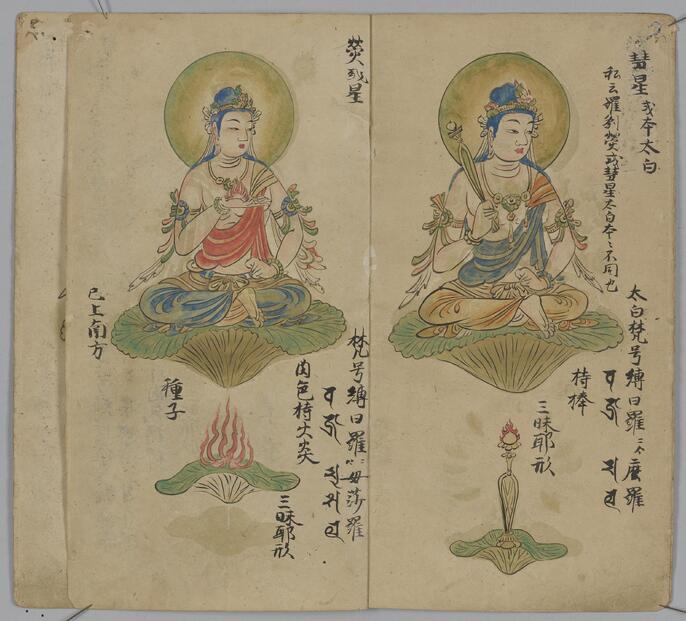 彗星 或本太白
私云羅刹熒或彗星太白本〻不同也
太白梵号縛日羅二合麼羅
持棒
三昧耶形
熒或星
梵号縛日羅二合母莎羅
肉色持火炎
三昧耶形
種子
已上南方